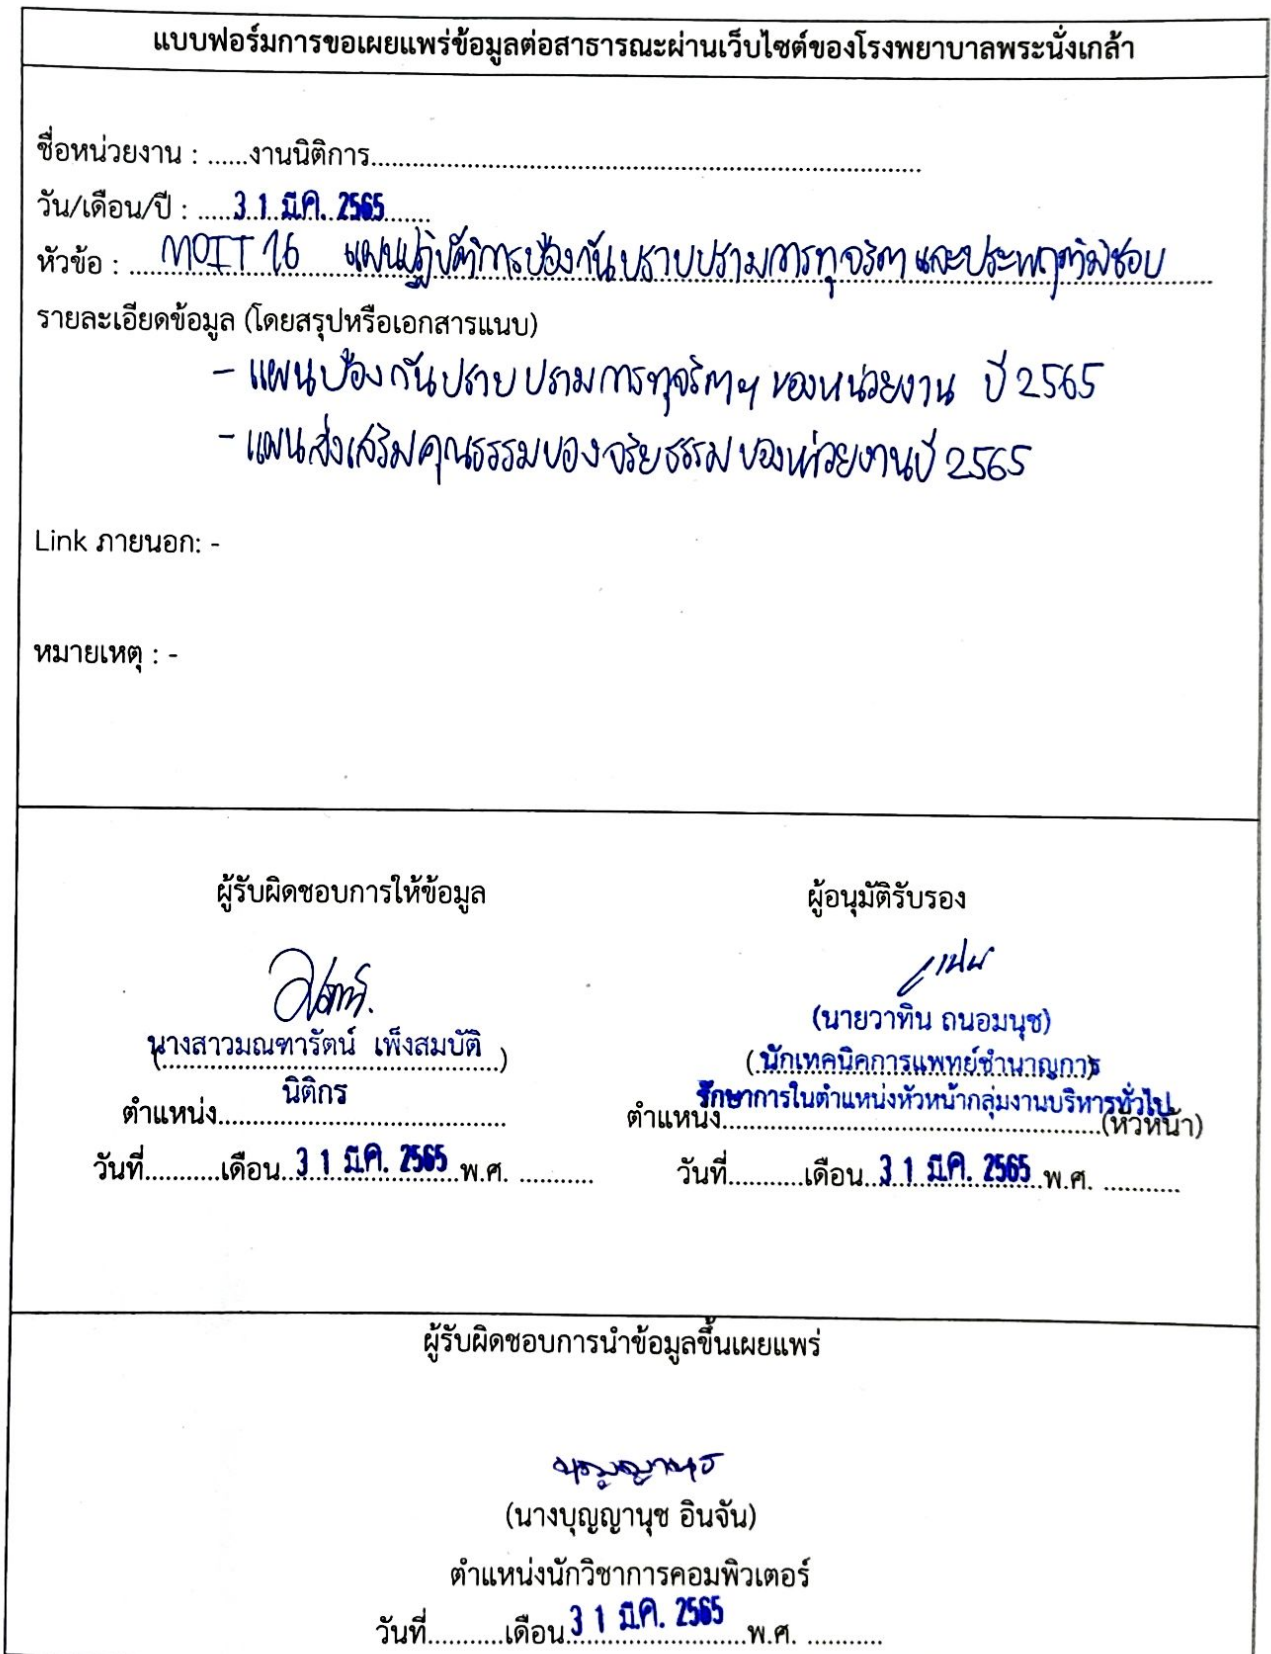 แบบฟอร์มการขอเผยแพร่ข้อมูลต่อสาธารณะผ่านเว็บไซต์ของโรงพยาบาลพระนั่งเกล้า
ชื่อหน่วยงาน : ......งานนิติการ......
วัน/เดือน/ปี : ..... 31 มี.ค. 2565 ......
หัวข้อ : .... MOIT 16 แผนปฏิบัติการป้องกันปราบปรามการทุจริตและประพฤติมิชอบ ......
รายละเอียดข้อมูล (โดยสรุปหรือเอกสารแนบ)
- แผนป้องกันปราบปรามการทุจริตฯ ของหน่วยงาน ปี 2565
- แผนส่งเสริมคุณธรรมของจริยธรรมของหน่วยงานปี 2565
Link ภายนอก: -
หมายเหตุ : -
ผู้รับผิดชอบการให้ข้อมูล
(นางสาวมณฑารัตน์ เพ็งสมบัติ)
ตำแหน่ง...... นิติกร ......
วันที่...........เดือน..31 มี.ค. 2565..พ.ศ. ...........
ผู้อนุมัติรับรอง
(นายวาทิน ถนอมนุช)
(นักเทคนิคการแพทย์ชำนาญการ)
รักษาการในตำแหน่งหัวหน้ากลุ่มงานบริหารทั่วไป
ตำแหน่ง......(หัวหน้า)
วันที่...........เดือน..31 มี.ค. 2565..พ.ศ. ...........
ผู้รับผิดชอบการนำข้อมูลขึ้นเผยแพร่
บุญญานุช
(นางบุญญานุช อินจัน)
ตำแหน่งนักวิชาการคอมพิวเตอร์
วันที่...........เดือน 31 มี.ค. 2565 ...พ.ศ. ...........